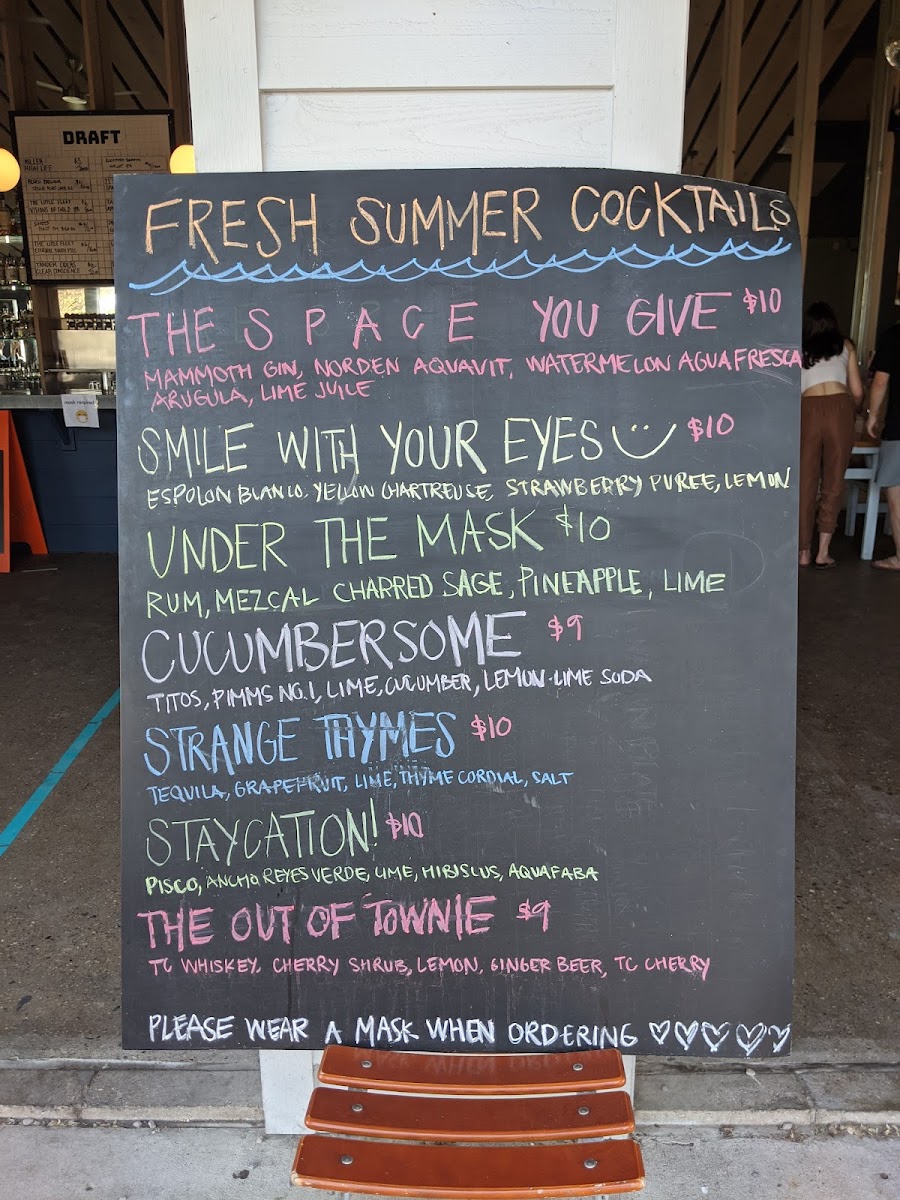 DRAFT
MILLER
HIGH LIFE
FRESH SUMMER COCKTAILS
THE SPACE YOU GIVE $10
MAMMOTH GIN, NORDEN AQUAVIT, WATERMELON AGUA FRESCA
ARUGULA, LIME JUICE
SMILE WITH YOUR EYES $10
ESPOLON BLANCO, YELLOW CHARTREUSE, STRAWBERRY PUREE, LEMON
UNDER THE MASK $10
RUM, MEZCAL CHARRED SAGE, PINEAPPLE, LIME
CUCUMBERSOME $9
TITOS, PIMMS NO.1, LIME, CUCUMBER, LEMON-LIME SODA
STRANGE THYMES $10
TEQUILA, GRAPEFRUIT, LIME, THYME CORDIAL, SALT
STAYCATION! $10
PISCO, ANCHO REYES VERDE, LIME, HIBISCUS, AQUAFABA
THE OUT OF TOWNIE $9
TC WHISKEY, CHERRY SHRUB, LEMON, GINGER BEER, TC CHERRY
PLEASE WEAR A MASK WHEN ORDERING